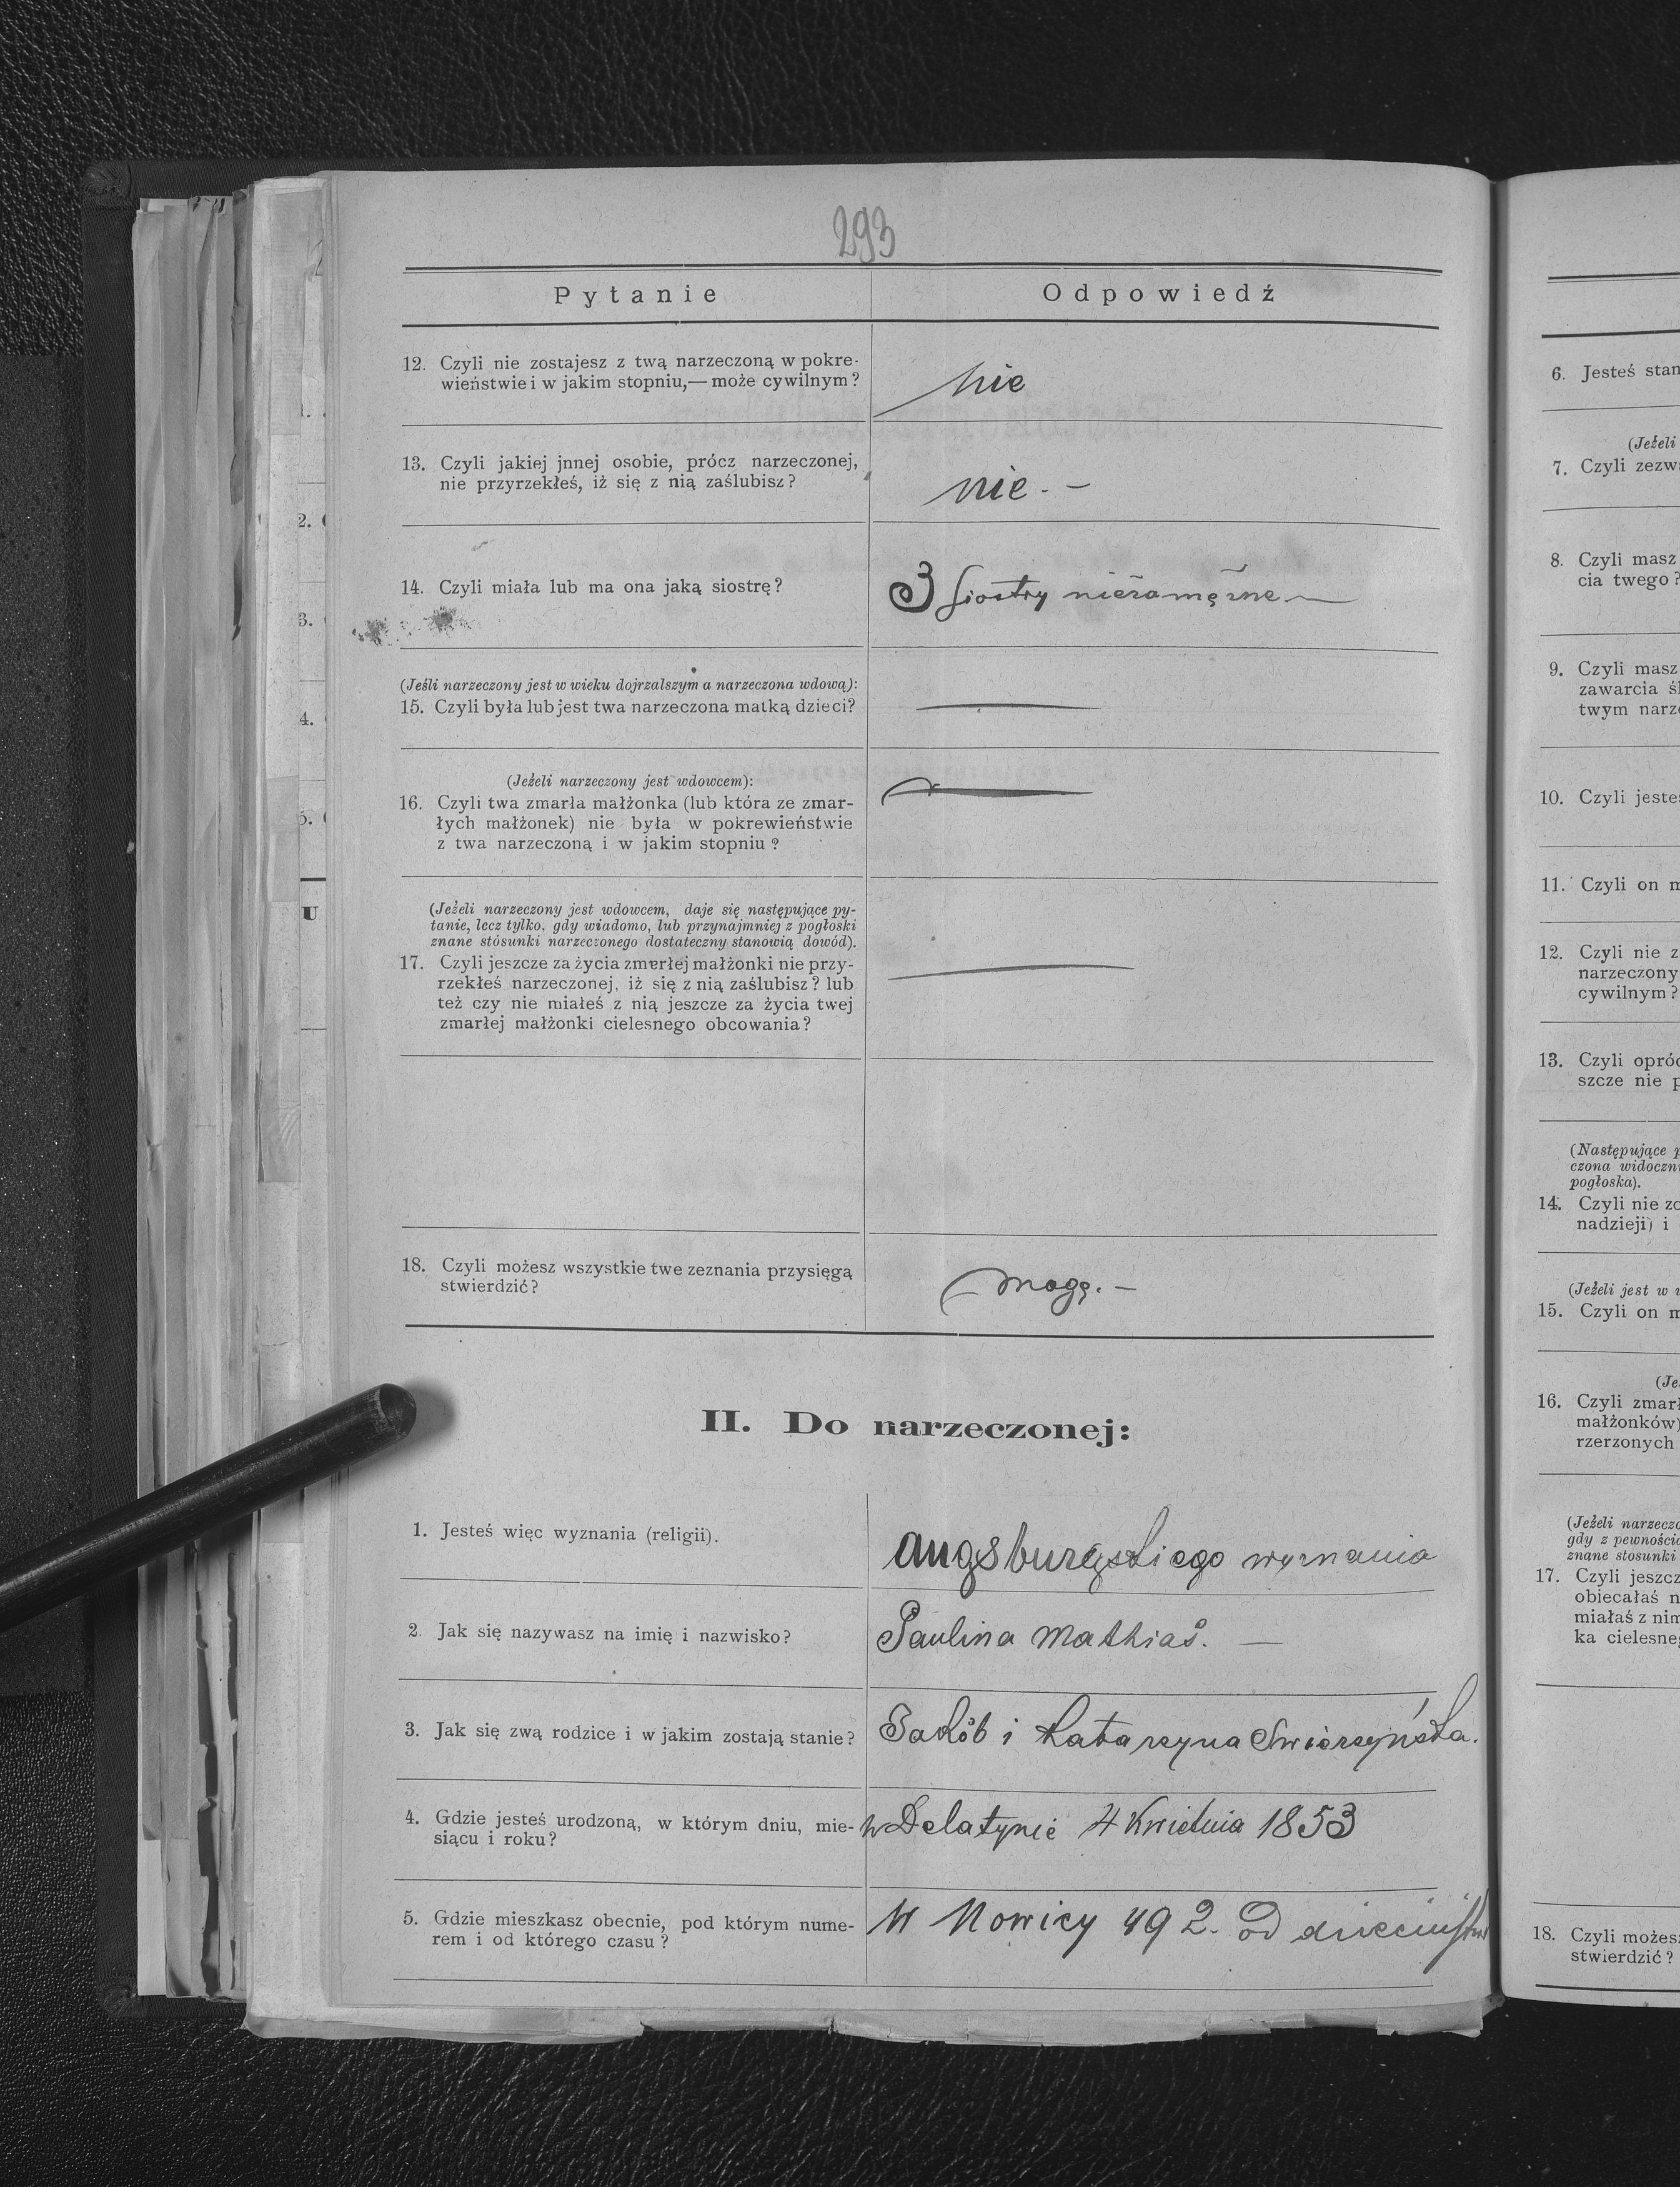 293
Pytanie
Odpowiedź
12. Czyli nie zostajesz z twą narzeczoną w pokre-
wieństwie i w jakim stopniu,— może cywilnym?
nie
13. Czyli jakiej jnnej osobie, prócz narzeczonej,
nie przyrzekłeś, iż się z nią zaślubisz?
nie. –
14. Czyli miała lub ma ona jaką siostrę?
3 siostry niezamężne —
(Jeśli narzeczony jest w wieku dojrzalszym a narzeczona wdową):
15. Czyli była lub jest twa narzeczona matką dzieci?
(Jeżeli narzeczony jest wdowcem):
16. Czyli twa zmarła małżonka (lub która ze zmar-
łych małżonek) nie była w pokrewieństwie
z twa narzeczoną i w jakim stopniu?
(Jeżeli narzeczony jest wdowcem, daje się następujące py-
tanie, lecz tylko, gdy wiadomo, lub przynajmniej z pogłoski
znane stósunki narzeczonego dostateczny stanowią dowód).
17. Czyli jeszcze za życia zmerłej małżonki nie przy-
rzekłeś narzeczonej, iż się z nią zaślubisz? lub
też czy nie miałeś z nią jeszcze za życia twej
zmarłej małżonki cielesnego obcowania?
18. Czyli możesz wszystkie twe zeznania przysięgą
stwierdzić?
mogę. –
II. Do narzeczonej:
1. Jesteś więc wyznania (religii).
augsburgskiego wyznania
2. Jak się nazywasz na imię i nazwisko?
Paulina Mathias. —
3. Jak się zwą rodzice i w jakim zostają stanie?
Jakób i Katarzyna
4. Gdzie jesteś urodzoną, w którym dniu, mie-
siącu i roku?
w Delatynie 4 Kwietnia 1853
5. Gdzie mieszkasz obecnie, pod którym nume-
rem i od którego czasu?
W Nowicy 492. od
6. Jesteś stan
(Jeżeli
7. Czyli zezw
8. Czyli masz
cia twego?
9. Czyli masz
zawarcia śl
twym narze
10. Czyli jeste
11. Czyli on m
12. Czyli nie z
narzeczony
cywilnym?
13. Czyli opróc
szcze nie p
(Następujące p
czona widoczni
pogłoska).
14. Czyli nie zo
nadzieji) i
(Jeżeli jest w w
15. Czyli on m
(Je
16. Czyli zmarł
małżonków)
rzerzonych
(Jeżeli narzeczo
gdy z pewnością
znane stosunki
17. Czyli jeszcz
obiecałaś n
miałaś z nim
ka cielesneg
18. Czyli możesz
stwierdzić?